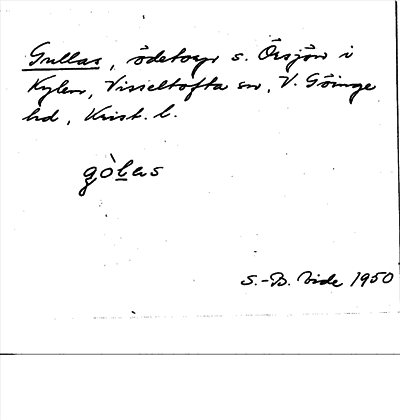 Gullas, ödetorp s. Örsjön i
Kylen, Visseltofta sn, V. Göinge
hd, Krist. l.
gòlas
S.-B. Vide 1950